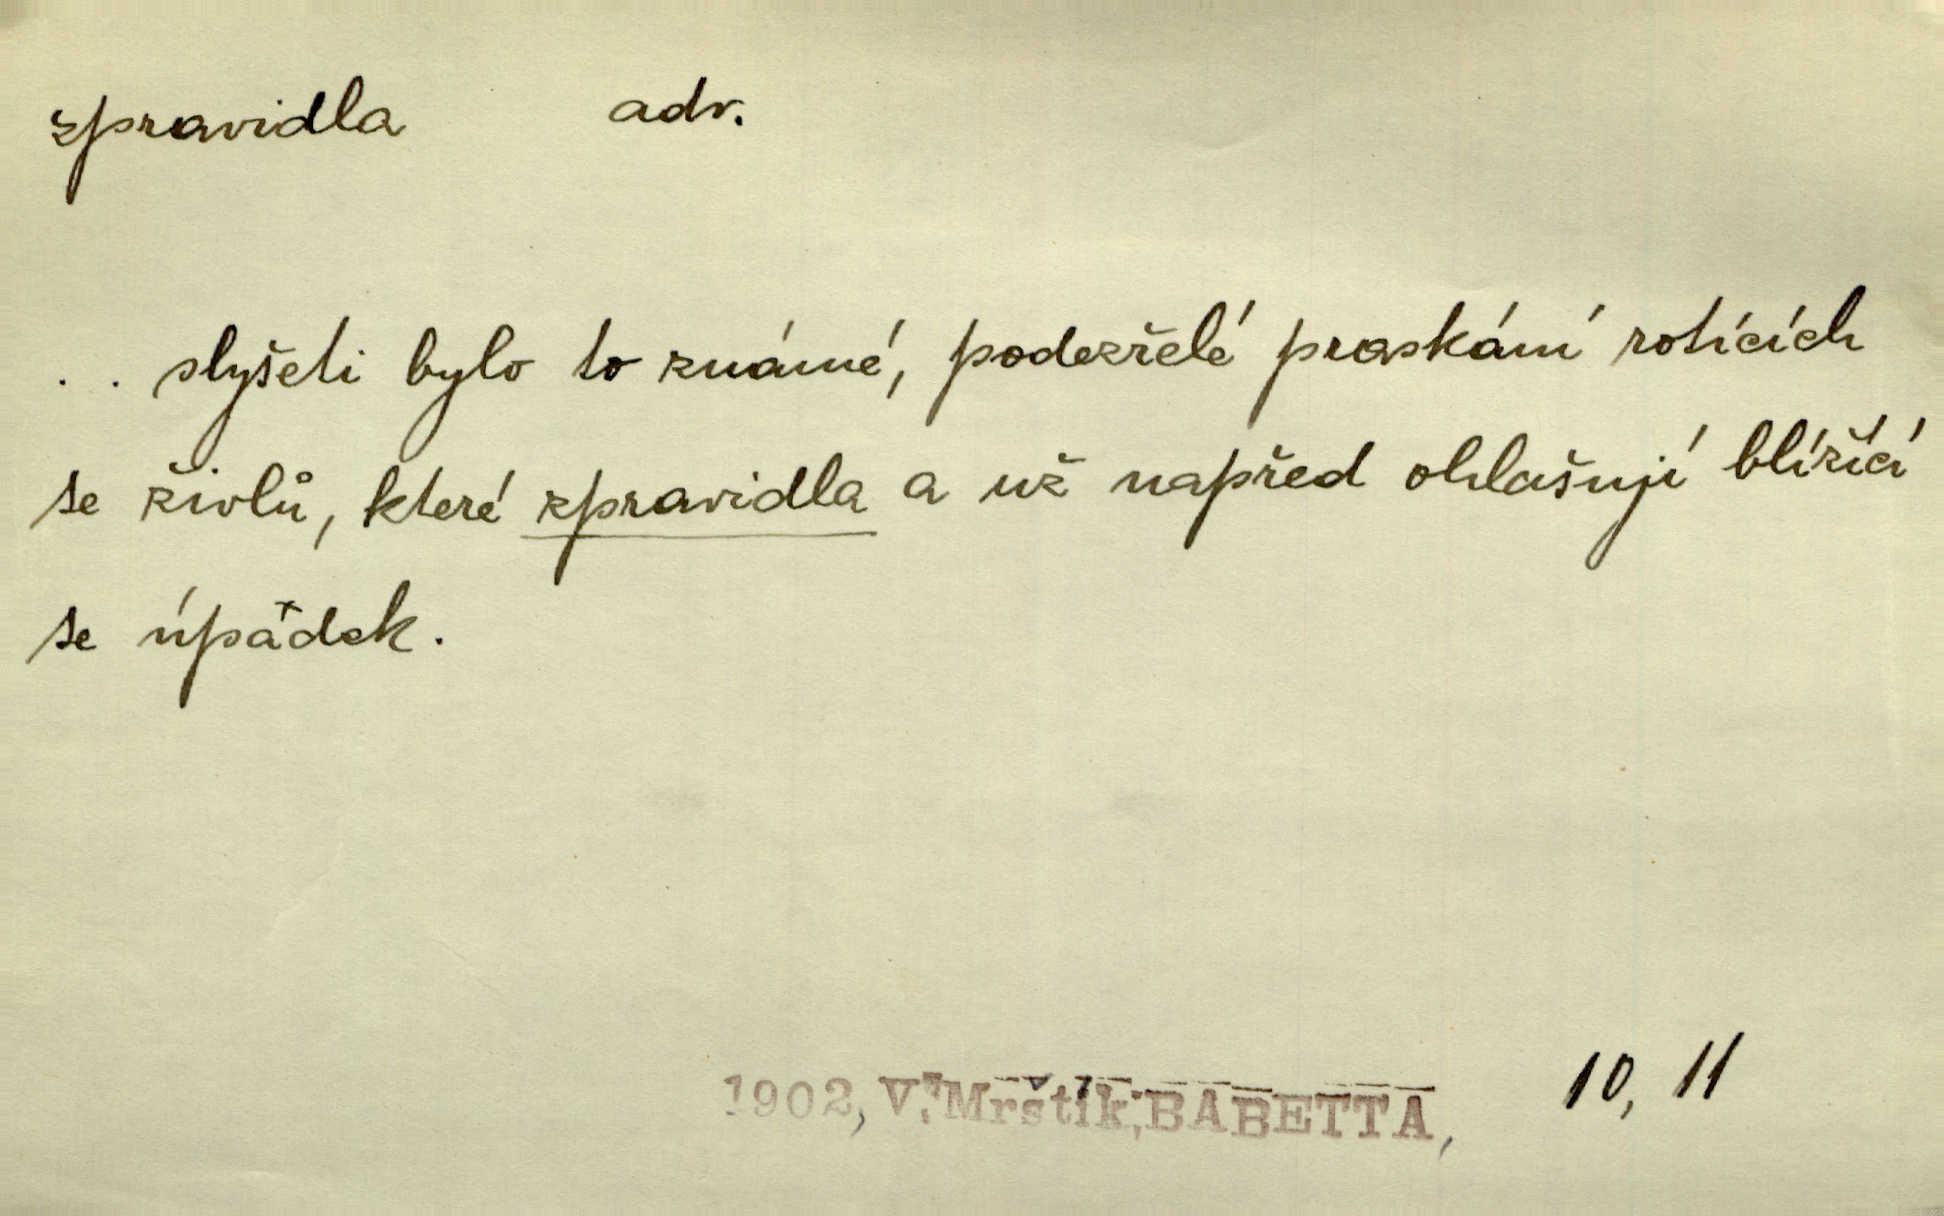 zpravidla adv.
. . slyšeti bylo to známé, podezřelé praskání rotících
se živlů, které zpravidla a už napřed ohlašují blížící
se úpadek.
1902, V. Mrštík, BABETTA, 10, 11